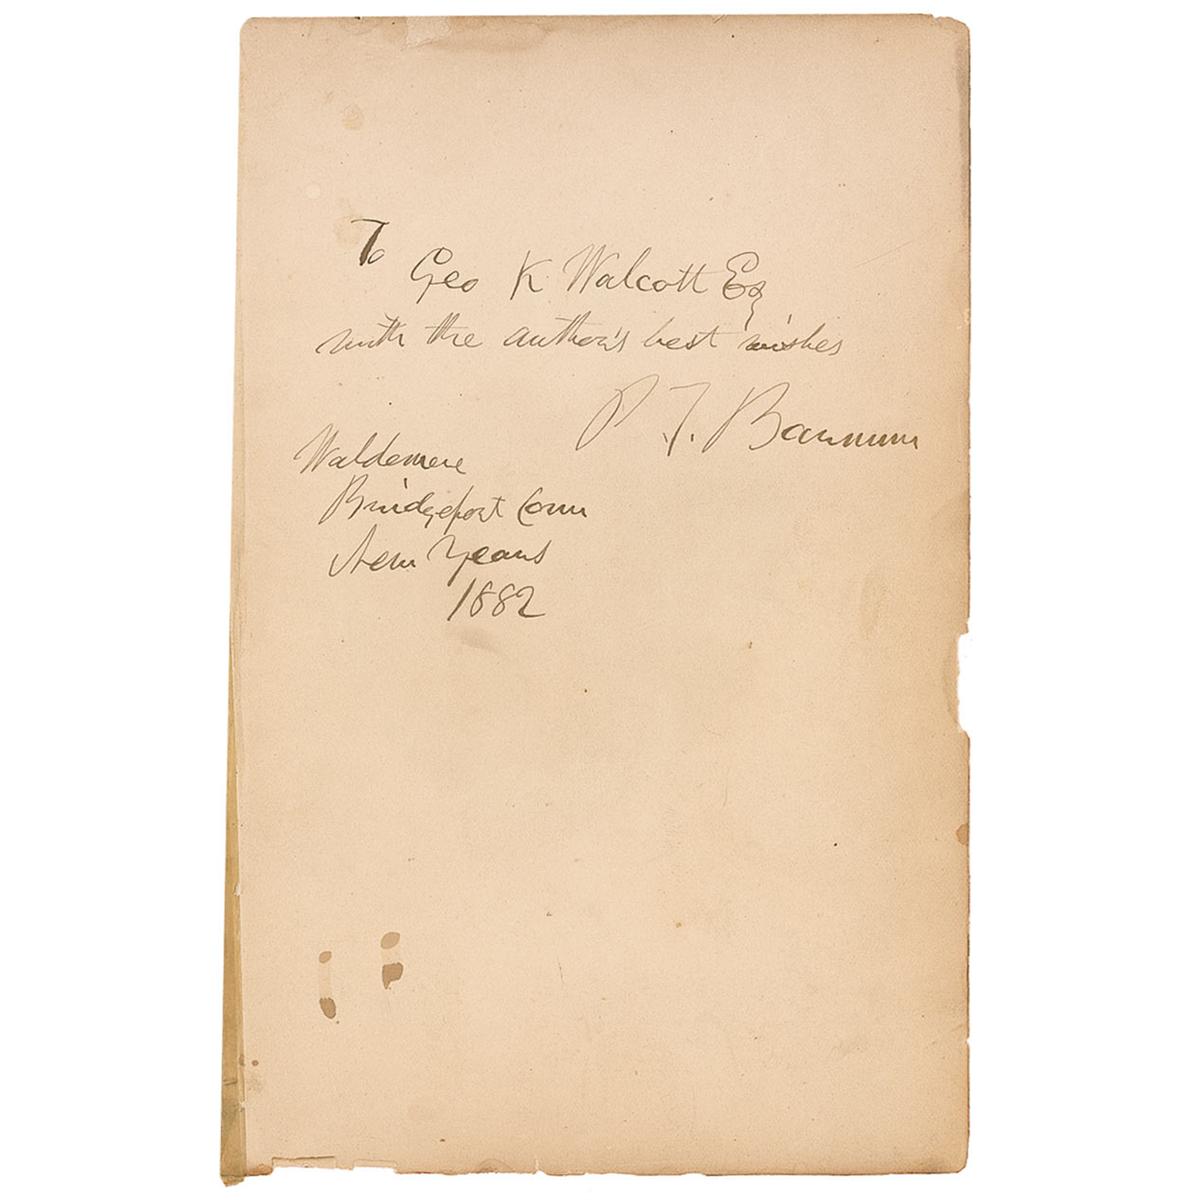 To
Geo K Walcott Esq
with the author's best wishes
P. T. Barnum
Waldemere
Bridgeport Conn
New Years
1882